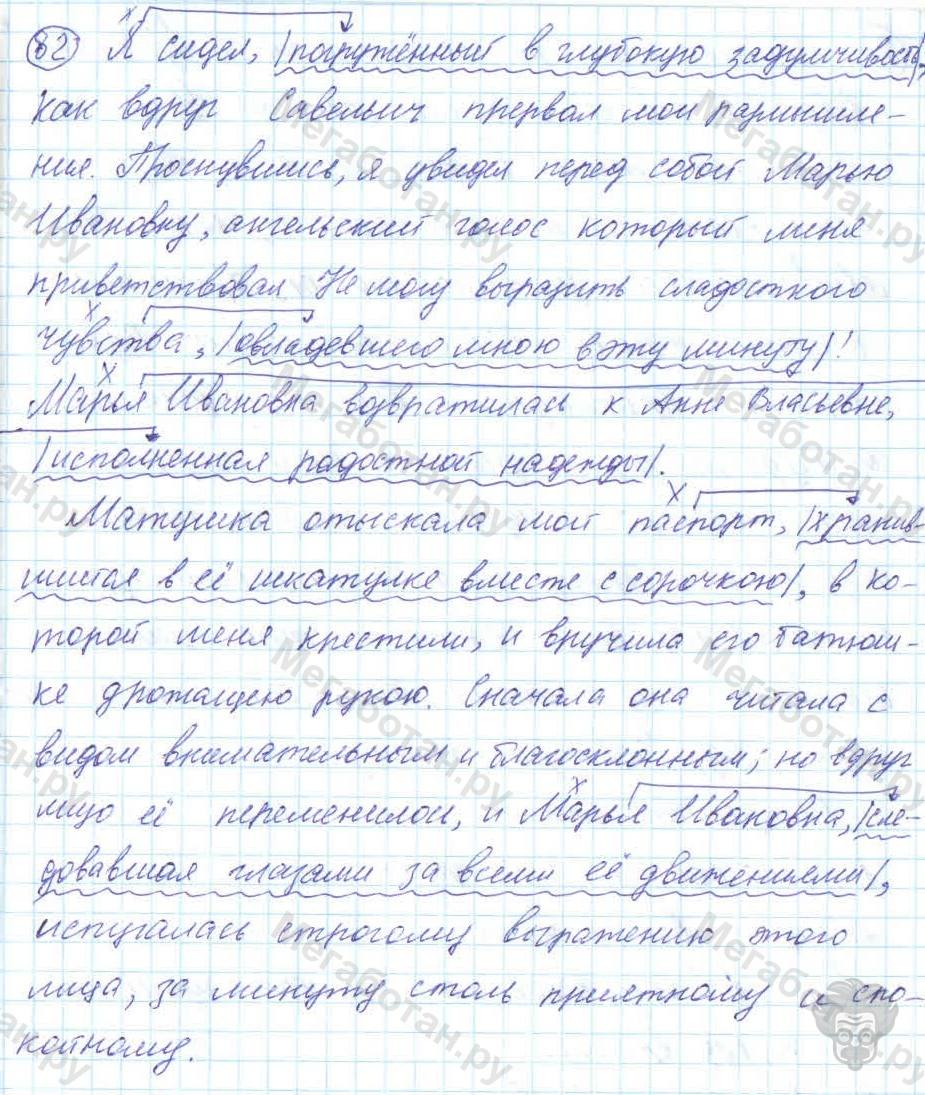 82) Я сидел, |погружённый в глубокую задумчивость|,
как вдруг Савельич прервал мои размышле-
ния. Проснувшись, я увидел перед собой Марью
Ивановну, ангельский голос который меня
приветствовал Не могу выразить сладостного
чувства, |овладевшего мною в эту минуту|!
Марья Ивановна возвратилась к Анне Власьевне,
|исполненная радостной надежды|.
Матушка отыскала мой паспорт, |хранив-
шийся в её шкатулке вместе с сорочкою|, в ко-
торой меня крестили, и вручила его батюш-
ке дрожащею рукою. Сначала она читала с
видом внимательным и благосклонным; но вдруг
лицо её переменилои, и Марья Ивановна, |сле-
довавшая глазами за всеми её движениями|,
испугалась строгому выражению этого
лица, за минуту столь приятному и спо-
койному.
Мегаботан.ру